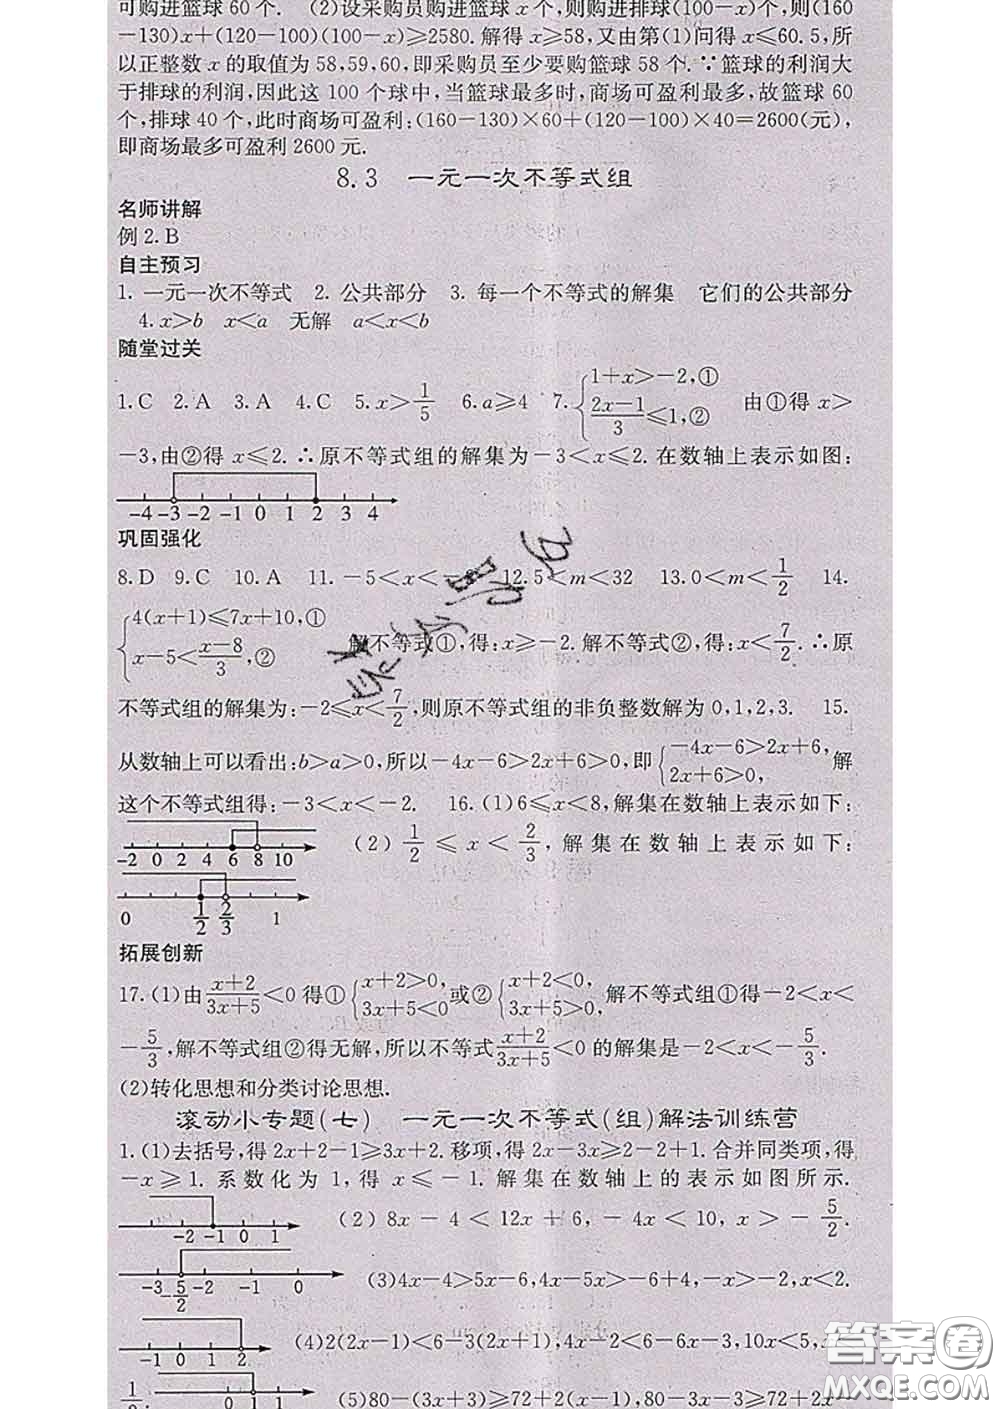 可购进篮球 60 个. (2)设采购员购进篮球 x 个,则购进排球(100-x)个,则(160
-130)x+(120-100)(100-x)≥2580.解得 x≥58,又由第(1)问得 x≤60.5,所
以正整数 x 的取值为 58,59,60,即采购员至少要购篮球 58 个.∵篮球的利润大
于排球的利润,因此这 100 个球中,当篮球最多时,商场可盈利最多,故篮球 60
个,排球 40 个,此时商场可盈利:(160-130)×60+(120-100)×40=2600(元),
即商场最多可盈利 2600 元.
8.3 一元一次不等式组
名师讲解
例 2.B
自主预习
1. 一元一次不等式 2. 公共部分 3. 每一个不等式的解集 它们的公共部分
4.x>b x<a 无解 a<x<b
随堂过关
1.C 2.A 3.A 4.C 5.x>1/5 6.a≥4 7.{1+x>-2,① (2x-1)/3≤1,② 由①得 x>
-3,由②得 x≤2.∴原不等式组的解集为-3<x≤2.在数轴上表示如图:
-4 -3 -2 -1 0 1 2 3 4
巩固强化
8.D 9.C 10.A 11.-5<x<- 12.5<m<32 13.0<m<1/2 14.
{4(x+1)≤7x+10,① x-5<(x-8)/3,② 解不等式①,得:x≥-2.解不等式②,得:x<7/2.∴原
不等式组的解集为:-2≤x<7/2,则原不等式组的非负整数解为 0,1,2,3. 15.
从数轴上可以看出:b>a>0,所以-4x-6>2x+6>0,即{-4x-6>2x+6, 2x+6>0, 解
这个不等式组得:-3<x<-2. 16.(1)6≤x<8,解集在数轴上表示如下:
-2 0 2 4 6 8 10 (2) 1/2≤x<2/3,解集在数轴上表示如下:
0 1/2 2/3 1
拓展创新
17.(1)由(x+2)/(3x+5)<0 得①{x+2>0, 3x+5<0 或②{x+2<0, 3x+5>0, 解不等式组①得-2<x<
-5/3,解不等式组②得无解,所以不等式(x+2)/(3x+5)<0 的解集是-2<x<-5/3.
(2)转化思想和分类讨论思想.
滚动小专题(七) 一元一次不等式(组)解法训练营
1.(1)去括号,得 2x+2-1≥3x+2.移项,得 2x-3x≥2-2+1.合并同类项,得
-x≥1. 系数化为 1,得 x≤-1. 解集在数轴上的表示如图所示.
-2 -1 0 1 (2) 8x-4<12x+6,-4x<10,x>-5/2.
-3 -5/2 -2 -1 0 (3)4x-4>5x-6,4x-5x>-6+4,-x>-2,x<2.
-1 0 1 2 (4)2(2x-1)<6-3(2x+1),4x-2<6-6x-3,10x<5,x<
-1 0 1 (5)80-(3x+3)≥72+2(x-1),80-3x-3≥72+2x-
答案圈
MXQE.COM